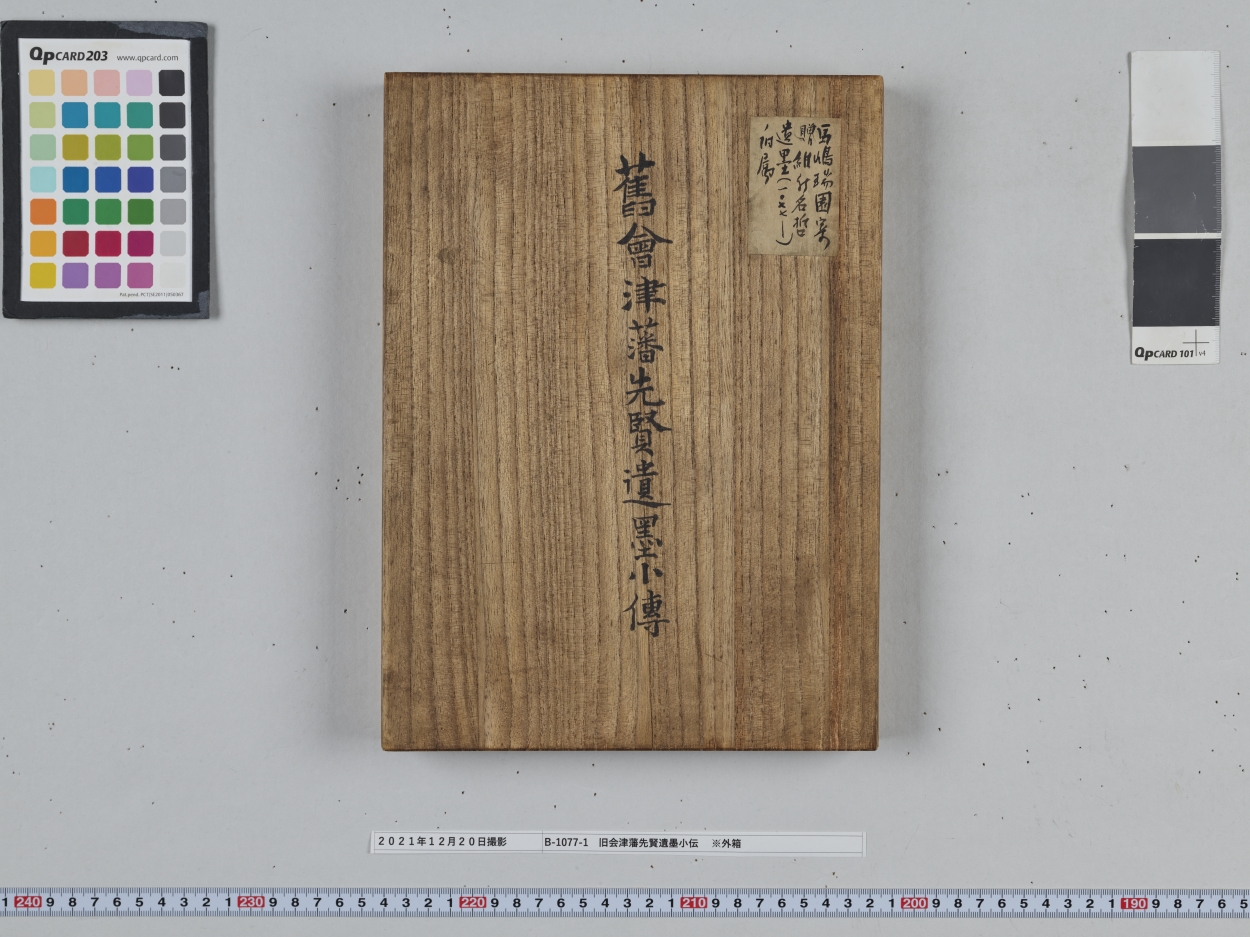 QpCARD 203 www.qpcard.com
Pat.pend. PCT/SE2011/050367
舊會津藩先賢遺墨小傳
馬嶋瑞園寄
贈維新名哲
遺墨(一〇七七ー一)
附属
QpCARD 101 v4
2021年12月20日撮影 B-1077-1 旧会津藩先賢遺墨小伝 ※外箱
1 240 9 8 7 6 5 4 3 2 1 230 9 8 7 6 5 4 3 2 1 220 9 8 7 6 5 4 3 2 1 210 9 8 7 6 5 4 3 2 1 200 9 8 7 6 5 4 3 2 1 190 9 8 7 6 5